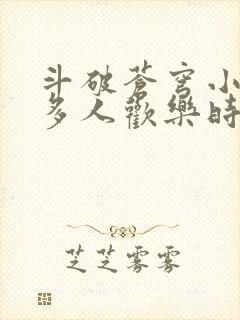 斗破蒼穹小
多人歡樂時
芝芝雾雾